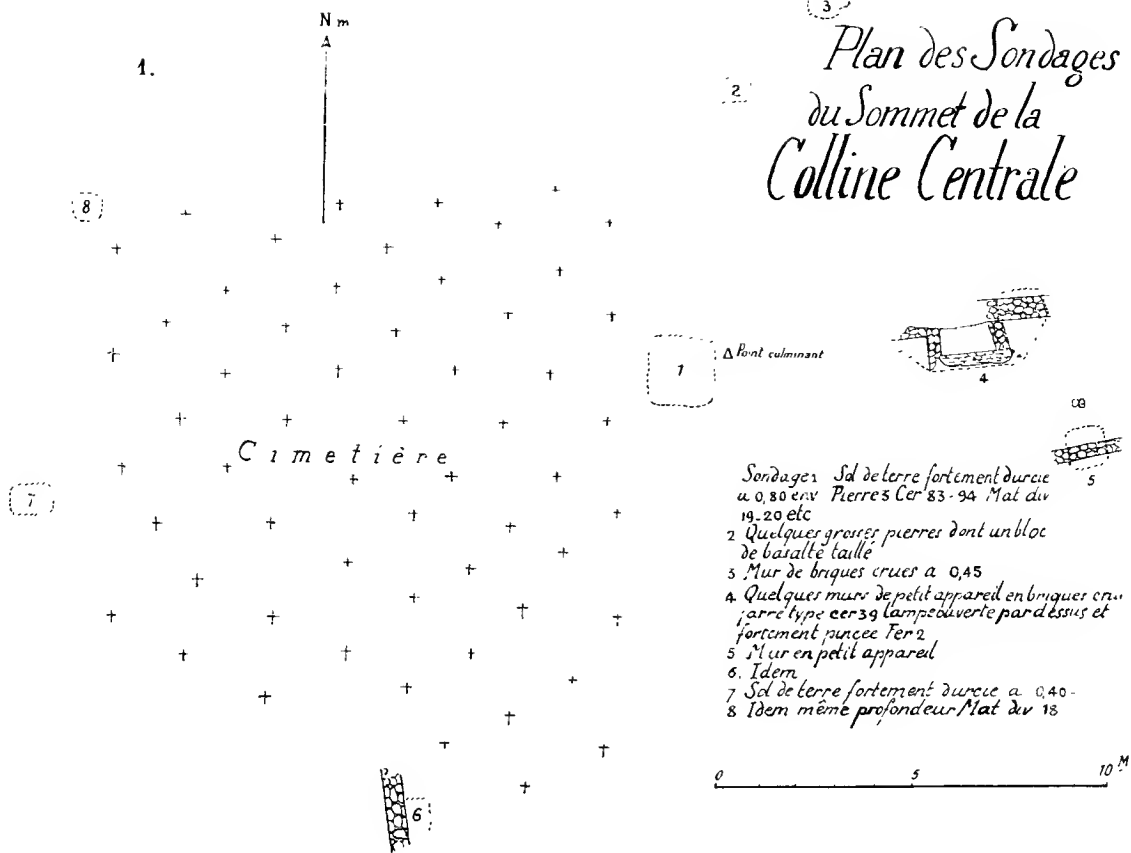 3
N m
1.
Plan des Sondages
du Sommet de la
Colline Centrale
2
8
1
Δ Point culminant
4
5
Cimetière
7
6
Sondage 1 Sol de terre fortement durcie
a 0,80 env Pierres Cer 83-94 Mat div
19-20 etc
2 Quelques grosses pierres dont un bloc
de basalte taillé
3 Mur de briques crues a 0,45
4 Quelques murs de petit appareil en briques cru
jarre type cer 39 lampe ouverte par dessus et
fortement pincee Fer 2
5 Mur en petit appareil
6. Idem
7 Sol de terre fortement durcie a 0,40-
8 Idem même profondeur Mat div 18
0 5 10 M